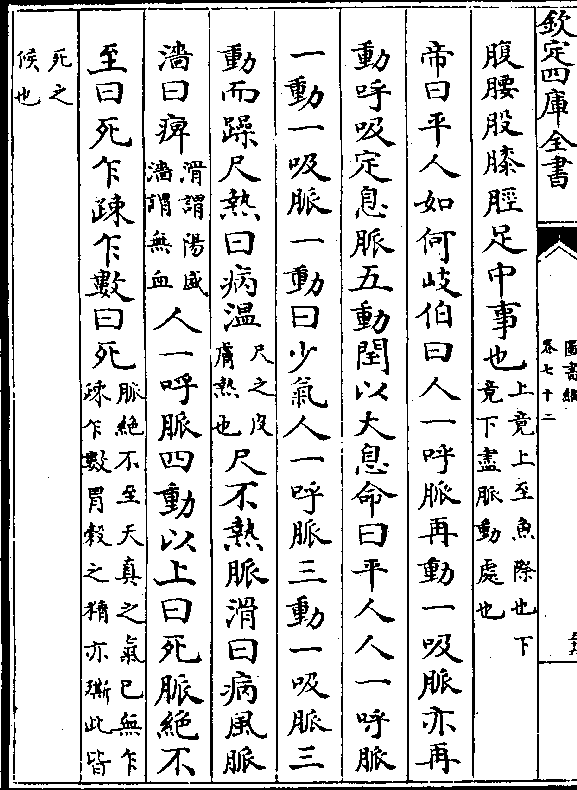 欽定四庫全書
圖書編
卷七十二
腹腰股膝脛足中事也上竟上至魚際也下竟下盡脈動處也
帝曰平人如何岐伯曰人一呼脈再動一吸脈亦再
動呼吸定息脈五動閏以大息命曰平人人一呼脈
一動一吸脈一動曰少氣人一呼脈三動一吸脈三
動而躁尺熱曰病溫尺之皮膚熱也尺不熱脈滑曰病風脈
濇曰痺滑謂陽盛濇謂無血人一呼脈四動以上曰死脈絕不
至曰死乍疎乍數曰死脈絕不至天真之氣已無乍疎乍數胃穀之精亦㒋此皆
死之候也